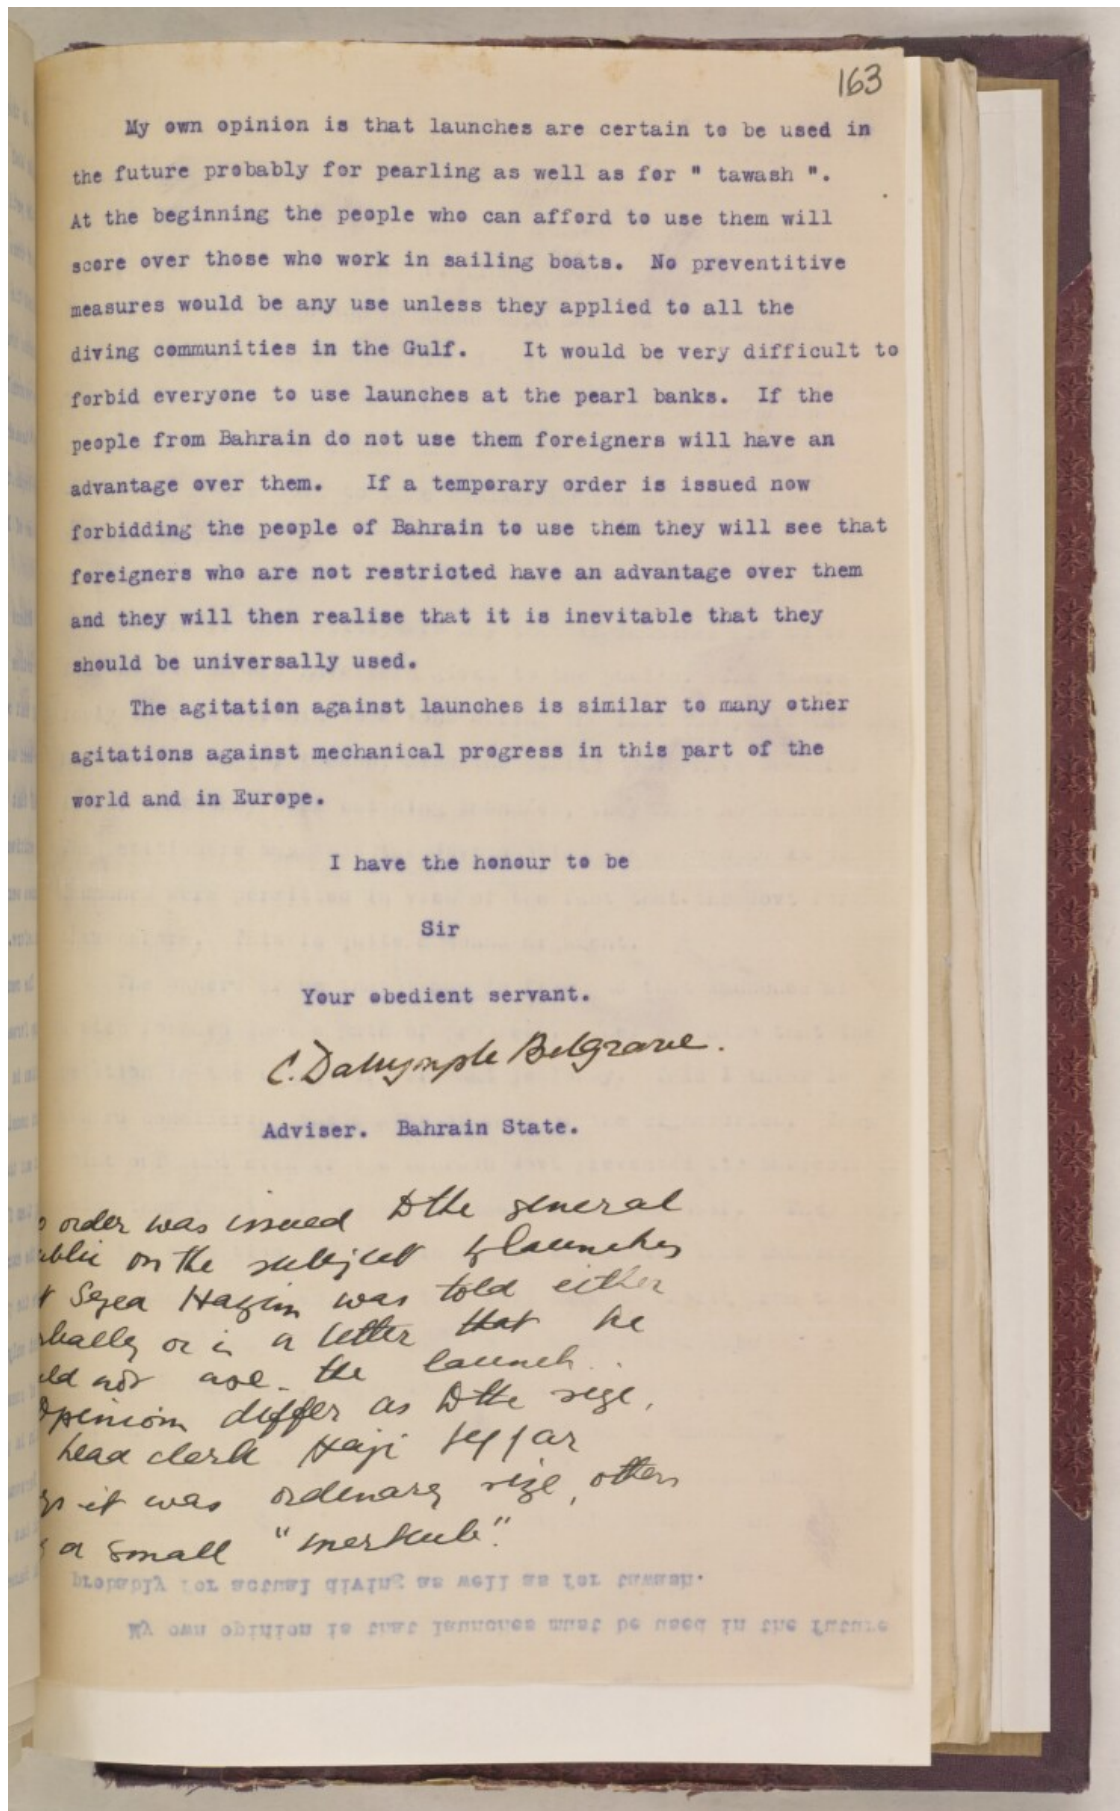 163
My own opinion is that launches are certain to be used in
the future probably for pearling as well as for " tawash ".
At the beginning the people who can afford to use them will
score over those who work in sailing boats. No preventitive
measures would be any use unless they applied to all the
diving communities in the Gulf. It would be very difficult to
forbid everyone to use launches at the pearl banks. If the
people from Bahrain do not use them foreigners will have an
advantage over them. If a temporary order is issued now
forbidding the people of Bahrain to use them they will see that
foreigners who are not restricted have an advantage over them
and they will then realise that it is inevitable that they
should be universally used.
The agitation against launches is similar to many other
agitations against mechanical progress in this part of the
world and in Europe.
I have the honour to be
Sir
Your obedient servant.
C. Dalrymple Belgrave.
Adviser. Bahrain State.
order was issued to the general
on the subject of launches
Seyed Hazim was told either
or in a letter that he
not use the launch.
opinions differ as to the size,
head clerk Haji
it was ordinary size, others
a small "
probably for actual diving as well as for tawash.
My own opinion is that launches must be used in the future